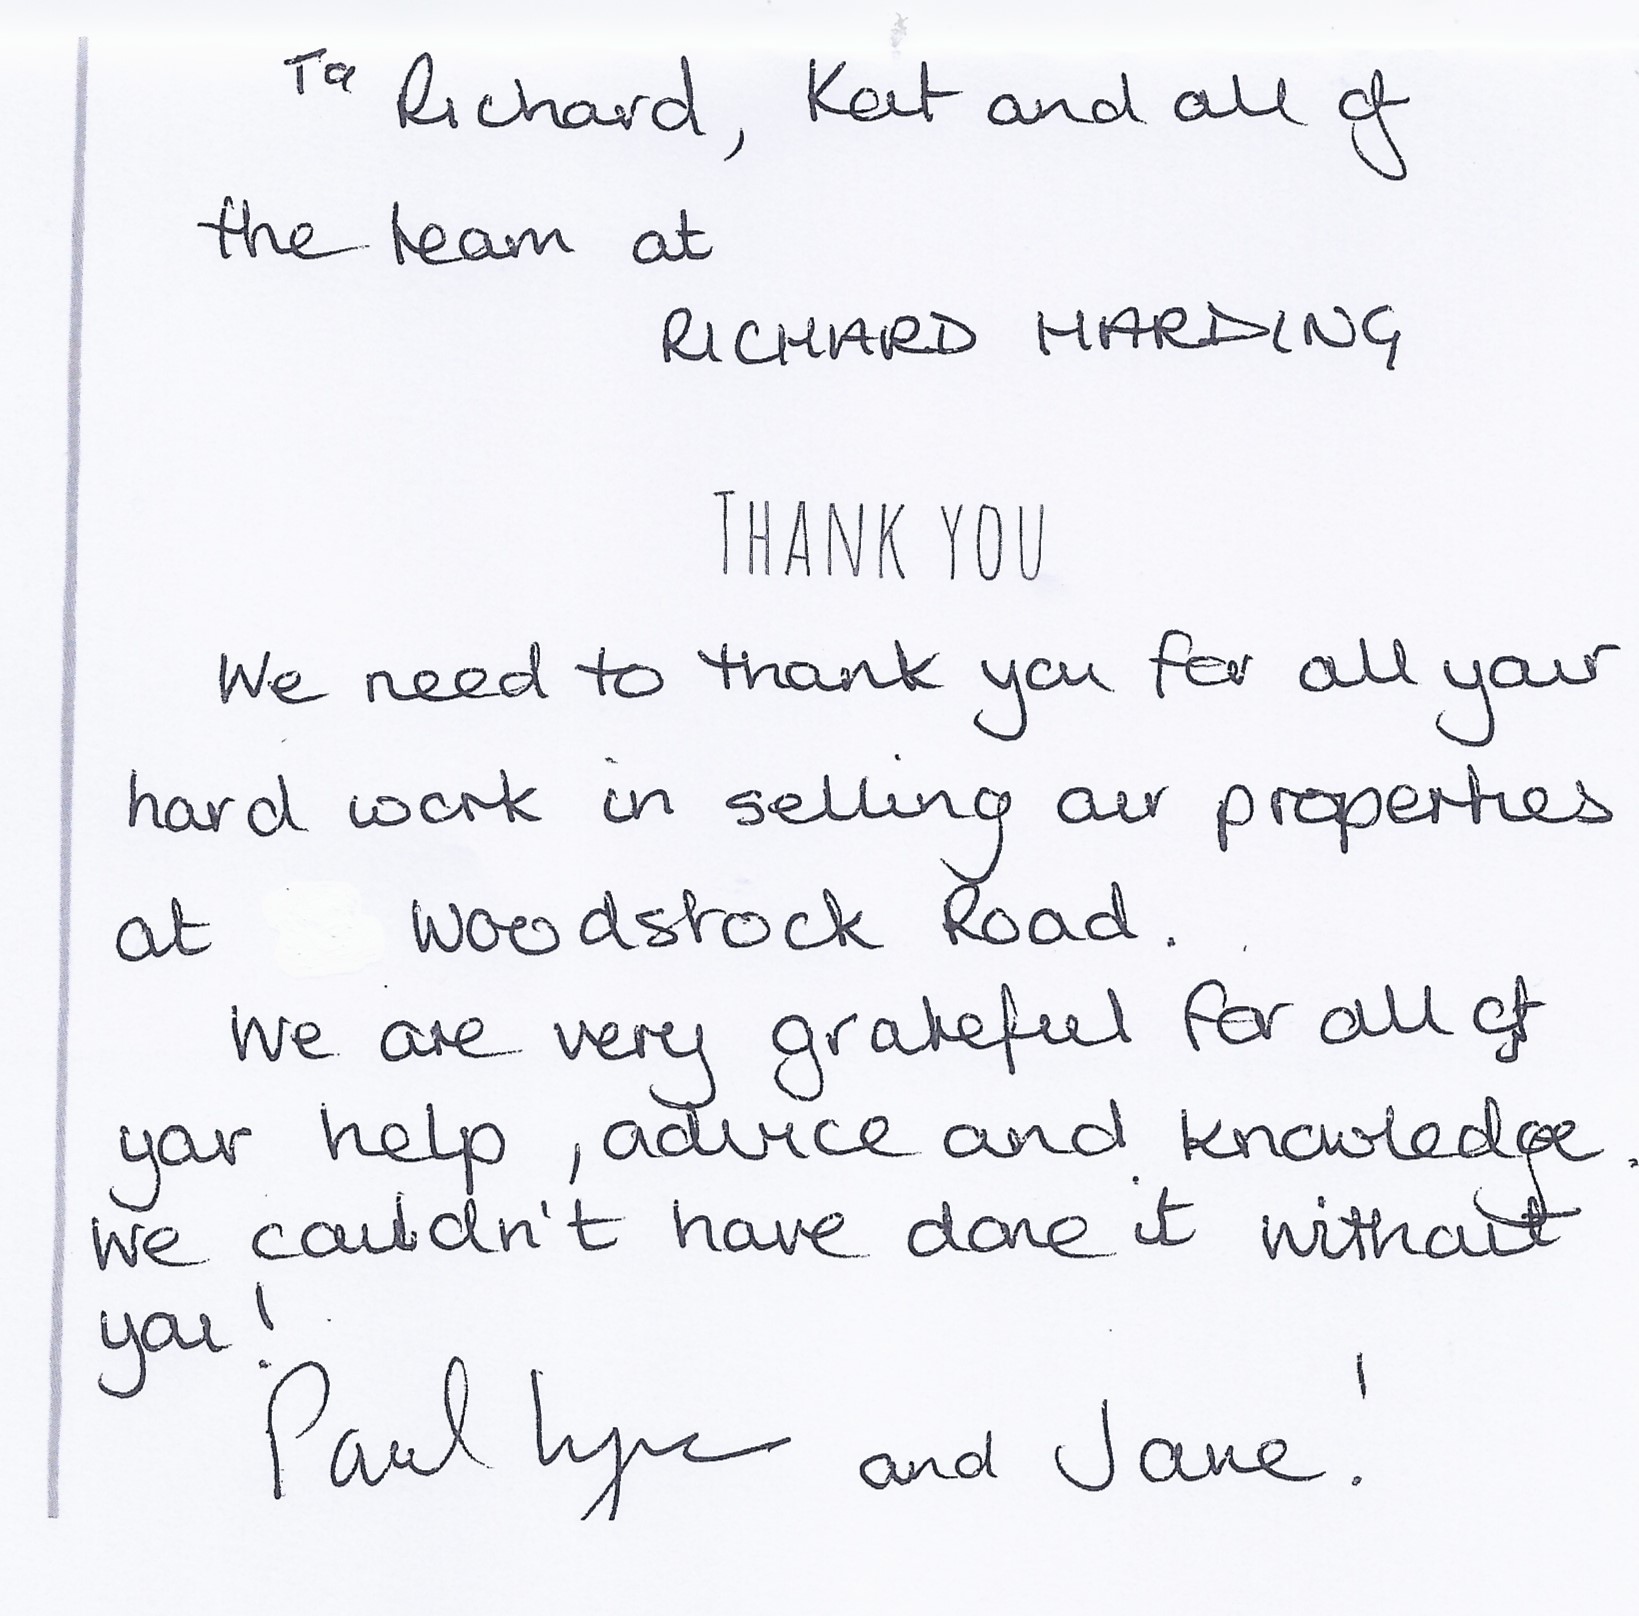 To Richard, Kat and all of
the team at
RICHARD HARDING
THANK YOU
We need to thank you for all your
hard work in selling our properties
at Woodstock Road.
We are very grateful for all of
your help, advice and knowledge.
We couldn't have done it without
you!
Paul and Jane!